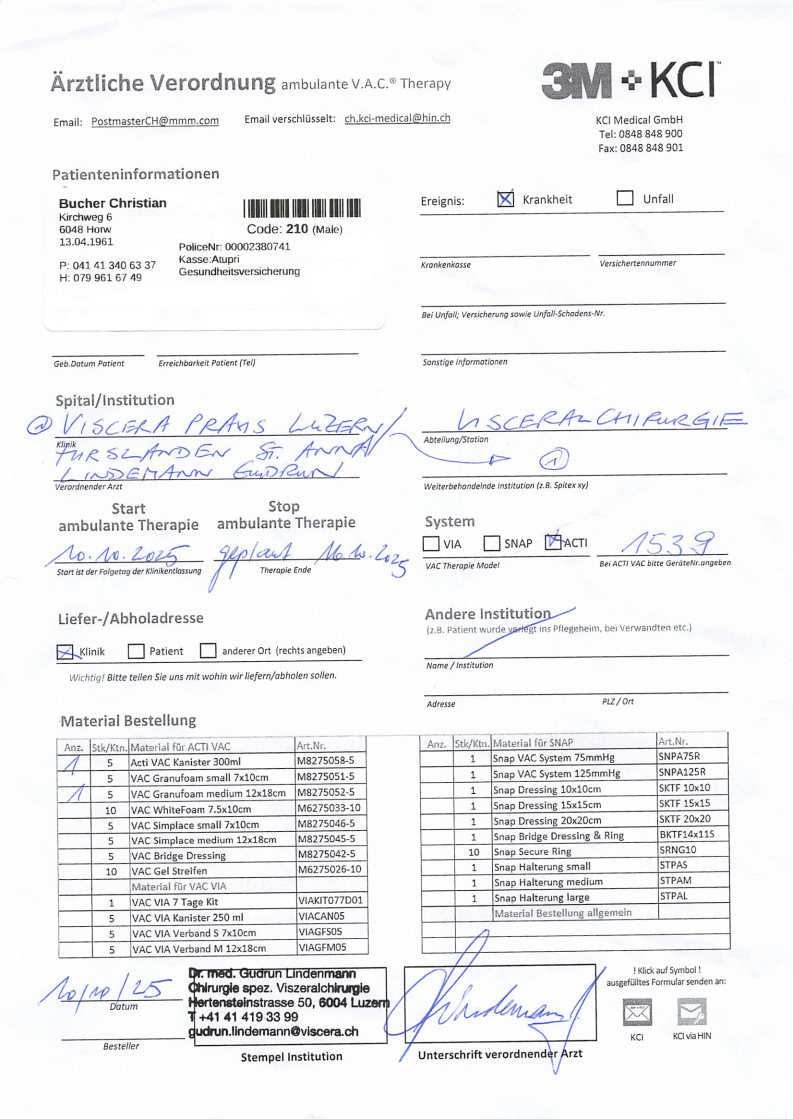 Ärztliche Verordnung ambulante V.A.C.® Therapy
3M + KCI™
Email: PostmasterCH@mmm.com
Email verschlüsselt: ch.kci-medical@hin.ch
KCI Medical GmbH
Tel: 0848 848 900
Fax: 0848 848 901
Patienteninformationen
Bucher Christian
Kirchweg 6
6048 Horw
13.04.1961
P: 041 41 340 63 37
H: 079 961 67 49
Code: 210 (Male)
PoliceNr: 00002380741
Kasse:Atupri
Gesundheitsversicherung
Ereignis: Krankheit Unfall
Krankenkasse Versichertennummer
Bei Unfall; Versicherung sowie Unfall-Schadens-Nr.
Geb.Datum Patient Erreichbarkeit Patient (Tel)
Sonstige Informationen
Spital/Institution
① VISCERA PRAXIS LUZERN/
Klinik
HIRSLANDEN ST. ANNA
LINDEMANN GUDRUN
Verordnender Arzt
VISCERALCHIRURGIE
Abteilung/Station
①
Weiterbehandelnde Institution (z.B. Spitex xy)
Start ambulante Therapie
Stop ambulante Therapie
10.10.2025
geplant 16.10.2025
Start ist der Folgetag der Klinikentlassung
Therapie Ende
System
VIA SNAP ACTI 1539
VAC Therapie Model
Bei ACTI VAC bitte GeräteNr.angeben
Liefer-/Abholadresse
Klinik Patient anderer Ort (rechts angeben)
Wichtig! Bitte teilen Sie uns mit wohin wir liefern/abholen sollen.
Andere Institution
(z.B. Patient wurde verlegt ins Pflegeheim, bei Verwandten etc.)
Name / Institution
Adresse PLZ / Ort
Material Bestellung
Anz. Stk/Ktn. Material für ACTI VAC Art.Nr.
1 5 Acti VAC Kanister 300ml M8275058-5
5 VAC Granufoam small 7x10cm M8275051-5
1 5 VAC Granufoam medium 12x18cm M8275052-5
10 VAC WhiteFoam 7.5x10cm M6275033-10
5 VAC Simplace small 7x10cm M8275046-5
5 VAC Simplace medium 12x18cm M8275045-5
5 VAC Bridge Dressing M8275042-5
10 VAC Gel Streifen M6275026-10
Material für VAC VIA
1 VAC VIA 7 Tage Kit VIAKIT077D01
5 VAC VIA Kanister 250 ml VIACAN05
5 VAC VIA Verband S 7x10cm VIAGFS05
5 VAC VIA Verband M 12x18cm VIAGFM05
Anz. Stk/Ktn. Material für SNAP Art.Nr.
1 Snap VAC System 75mmHg SNPA75R
1 Snap VAC System 125mmHg SNPA125R
1 Snap Dressing 10x10cm SKTF 10x10
1 Snap Dressing 15x15cm SKTF 15x15
1 Snap Dressing 20x20cm SKTF 20x20
1 Snap Bridge Dressing & Ring BKTF14x11S
10 Snap Secure Ring SRNG10
1 Snap Halterung small STPAS
1 Snap Halterung medium STPAM
1 Snap Halterung large STPAL
Material Bestellung allgemein
10/10/25
Datum
Besteller
Dr. med. Gudrun Lindenmann
Chirurgie spez. Viszeralchirurgie
Hertensteinstrasse 50, 6004 Luzern
T +41 41 419 33 99
gudrun.lindemann@viscera.ch
Stempel Institution
Lindemann
Unterschrift verordnender Arzt
! Klick auf Symbol !
ausgefülltes Formular senden an:
KCI KCI via HIN